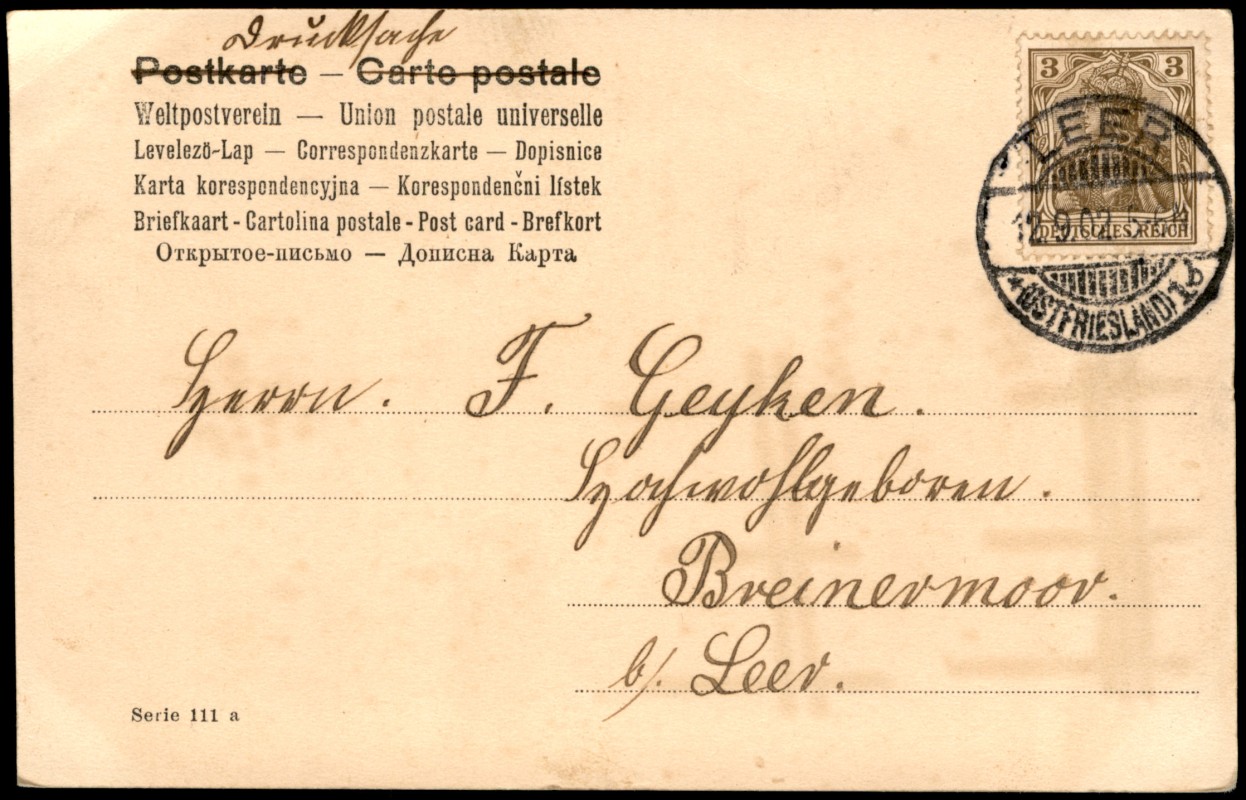 Drucksache
Postkarte – Carte postale
Weltpostverein — Union postale universelle
Levelezö-Lap — Correspondenzkarte — Dopisnice
Karta korespondencyjna — Korespondenčni lístek
Briefkaart - Cartolina postale - Post card - Brefkort
Открытое-письмо — Дописна Карта
3 3
DEUTSCHES REICH
LEER
12.9.02. 5-6N
* (OSTFRIESLAND) 1b
Herrn. F. Geyken.
Hochwohlgeboren.
Breinermoor.
b/. Leer.
Serie 111 a